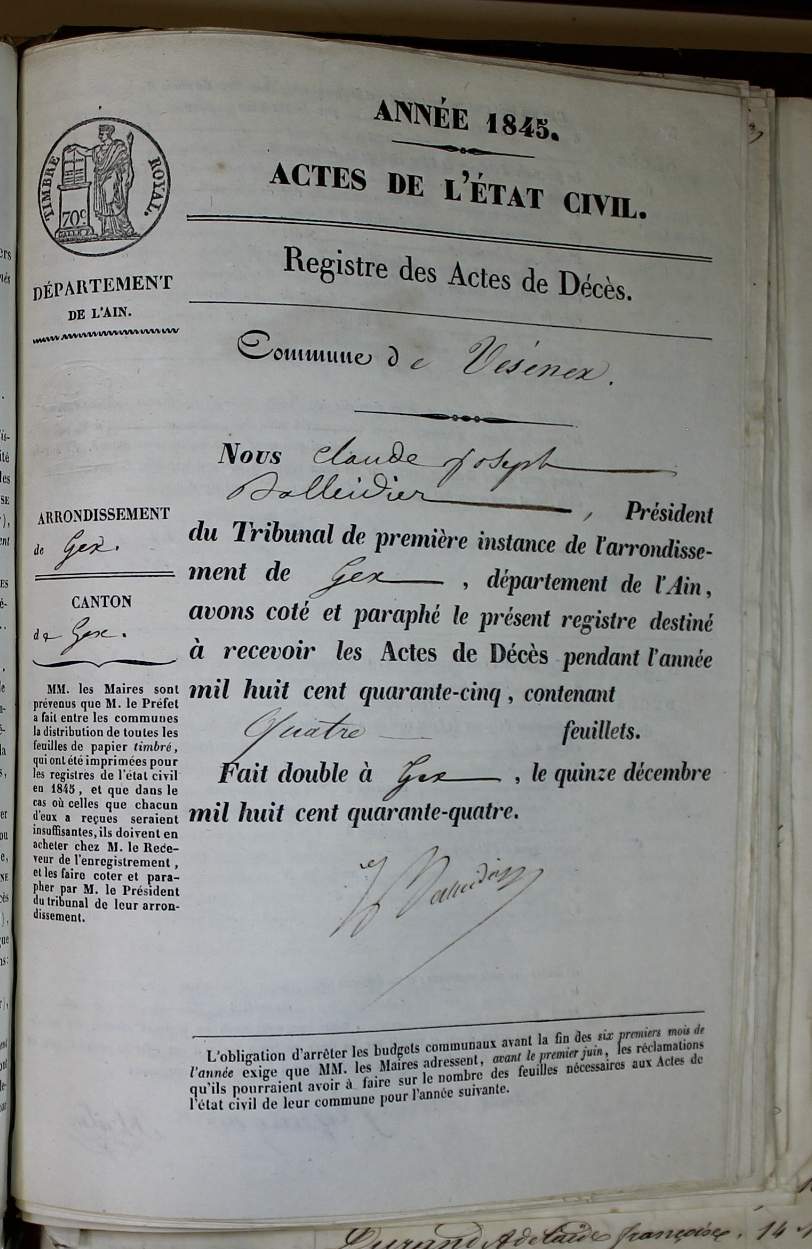 ANNÉE 1845.
ACTES DE L'ÉTAT CIVIL.
Registre des Actes de Décès.
Commune de Vésenex.
TIMBRE ROYAL.
70c
DÉPARTEMENT
DE L'AIN.
ARRONDISSEMENT
de Gex.
CANTON
de Gex.
MM. les Maires sont
prévenus que M. le Préfet
a fait entre les communes
la distribution de toutes les
feuilles de papier timbré,
qui ont été imprimées pour
les registres de l'état civil
en 1845, et que dans le
cas où celles que chacun
d'eux a reçues seraient
insuffisantes, ils doivent en
acheter chez M. le Rece-
veur de l'enregistrement,
et les faire coter et para-
pher par M. le Président
du tribunal de leur arron-
dissement.
Nous Claude Joseph
Balleidier, Président
du Tribunal de première instance de l'arrondisse-
ment de Gex, département de l'Ain,
avons coté et paraphé le présent registre destiné
à recevoir les Actes de Décès pendant l'année
mil huit cent quarante-cinq, contenant
Quatre feuillets.
Fait double à Gex, le quinze décembre
mil huit cent quarante-quatre.
Balleidier
L'obligation d'arrêter les budgets communaux avant la fin des six premiers mois de
l'année exige que MM. les Maires adressent, avant le premier juin, les réclamations
qu'ils pourraient avoir à faire sur le nombre des feuilles nécessaires aux Actes de
l'état civil de leur commune pour l'année suivante.
Durand Adelaïde françoise. 14